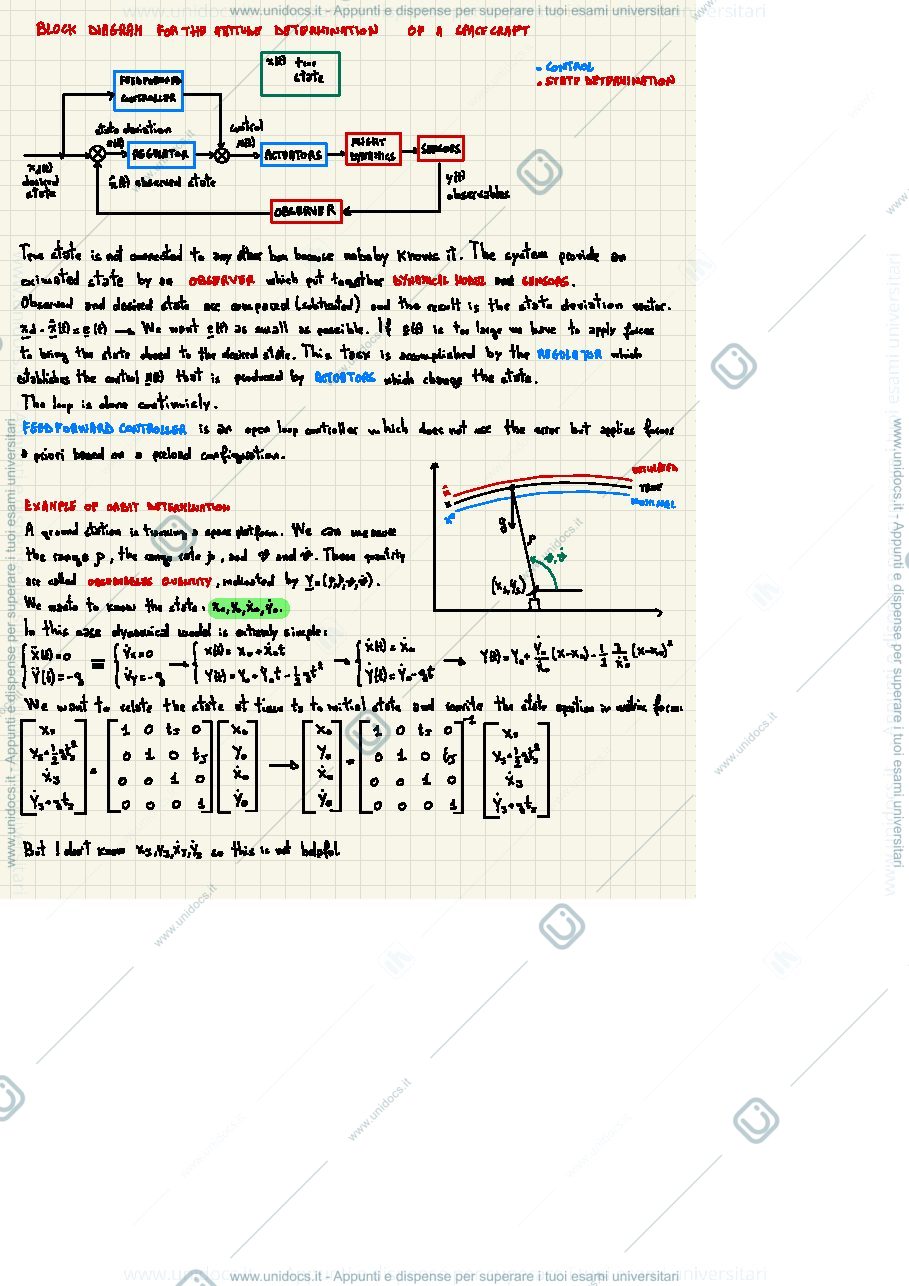 www.unidocs.it - Appunti e dispense per superare i tuoi esami universitari
BLOCK DIAGRAM FOR THE ATTITUDE DETERMINATION OF A SPACECRAFT
- CONTROL
• STATE DETERMINATION
x(t) true
state
FEEDFORWARD
CONTROLLER
state deviation
control
u(t)
REGULATOR
ACTUATORS
FLIGHT
DYNAMICS
SENSORS
desired
state
x̂(t) observed state
y(t)
observables
OBSERVER
True state is not connected to any other box because nobody knows it. The system provide an
estimated state by an OBSERVER which put together DYNAMICAL MODEL and SENSORS.
Observed and desired state are compared (subtracted) and the result is the state deviation vector.
xd - x̂(t) = e(t) → We want e(t) as small as possible. If e(t) is too large we have to apply forces
to bring the state closed to the desired state. This task is accomplished by the REGOLATOR which
establishes the control u(t) that is produced by ACTUATORS which change the state.
The loop is done continuously.
FEEDFORWARD CONTROLLER is an open loop controller which does not use the error but applies forces
a priori based on a preload configuration.
EXAMPLE OF ORBIT DETERMINATION
A ground station is tracking a space platform. We can measure
the range ρ, the range rate ρ̇, and ϑ and ϑ̇. These quantity
are called OBSERVABLES QUANTITY, indicated by Y=(ρ,ρ̇,ϑ,ϑ̇).
We wants to know the state: x₀,y₀,ẋ₀,ẏ₀.
ESTIMATED
TRUE
NOMINAL
x̂
x
x*
g
ρ
ϑ, ϑ̇
(xs,ys)
In this case dynamical model is extremely simple:
ẍ(t)=0
ÿ(t)=-g
≡
v̇x=0
v̇y=-g
→
x(t)= x₀+ẋ₀t
y(t)= y₀+ẏ₀t-½gt²
→
ẋ(t)= ẋ₀
ẏ(t)= ẏ₀-gt
→ y(t)= y₀+ ẏ₀/ẋ₀ (x-x₀) - ½ g/ẋ₀² (x-x₀)²
We want to relate the state at times ts to initial state and rewrite the state equation in matrix form:
[xs, ys+½gts², ẋs, ẏs+gts] = [1 0 ts 0; 0 1 0 ts; 0 0 1 0; 0 0 0 1] [x₀, y₀, ẋ₀, ẏ₀] → [x₀, y₀, ẋ₀, ẏ₀] = [1 0 ts 0; 0 1 0 ts; 0 0 1 0; 0 0 0 1]⁻¹ [xs, ys+½gts², ẋs, ẏs+gts]
But I don't know xs,ys,ẋs,ẏs so this is not helpful.
www.unidocs.it - Appunti e dispense per superare i tuoi esami universitari